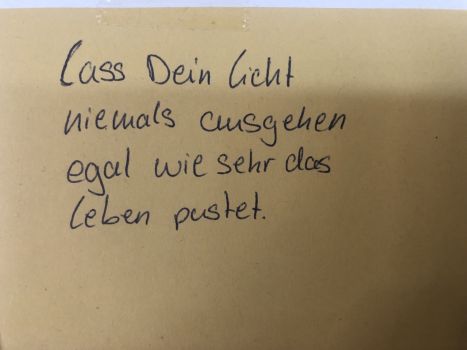 Lass Dein Licht
niemals ausgehen
egal wie sehr das
Leben pustet.